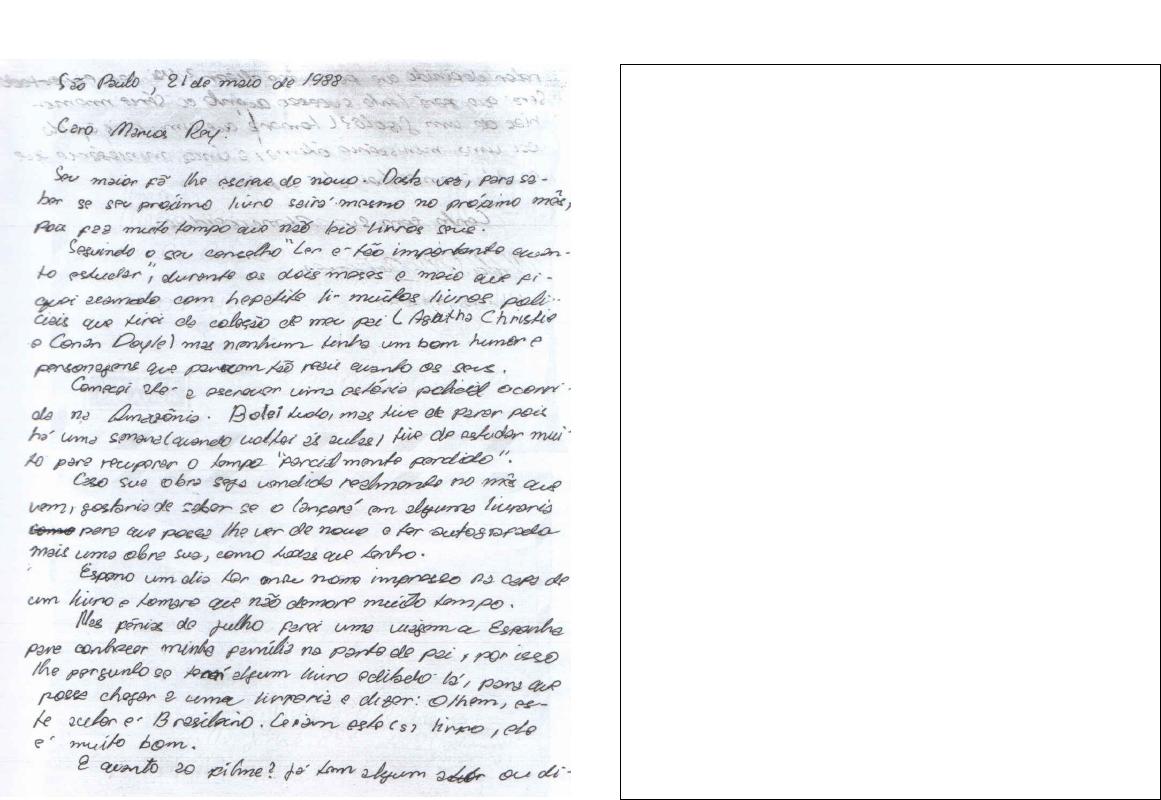 São Paulo, 21 de maio de 1988
Caro Marcos Rey!
Seu maior fã lhe escreve de novo. Desta vez, para sa-
ber se seu próximo livro sairá mesmo no próximo mês,
pois faz muito tempo que não leio livros seus.
Seguindo o seu conselho "Ler é tão importante quan-
to estudar", durante os dois meses e meio que fi-
quei acamado com hepatite li muitos livros poli-
ciais que tirei da coleção de meu pai (Agatha Christie
e Conan Doyle) mas nenhum tinha um bom humor e
personagens que parecem tão reais quanto os seus.
Começei até a escrever uma estória policial ocorri-
da na Amazônia. Bolei tudo, mas tive de parar pois
há uma semana (quando voltei às aulas) tive de estudar mui-
to para recuperar o tempo "parcialmente perdido".
Caso sua obra seja vendida realmente no mês que
vem, gostaria de saber se o lançará em alguma livraria
para que possa lhe ver de novo e ter autografada
mais uma obra sua, como todas que tenho.
Espero um dia ter meu nome impresso na capa de
um livro e tomara que não demore muito tempo.
Nas férias de julho farei uma viagem a Espanha
para conhecer minha família na parte de pai, por isso
lhe pergunto se terá algum livro editado lá, para que
possa chegar a uma livraria e dizer: Olhem, es-
te autor é Brasileiro. Leiam este(s) livro, ele
é muito bom.
E quanto ao filme? Já tem algum ator ou di-